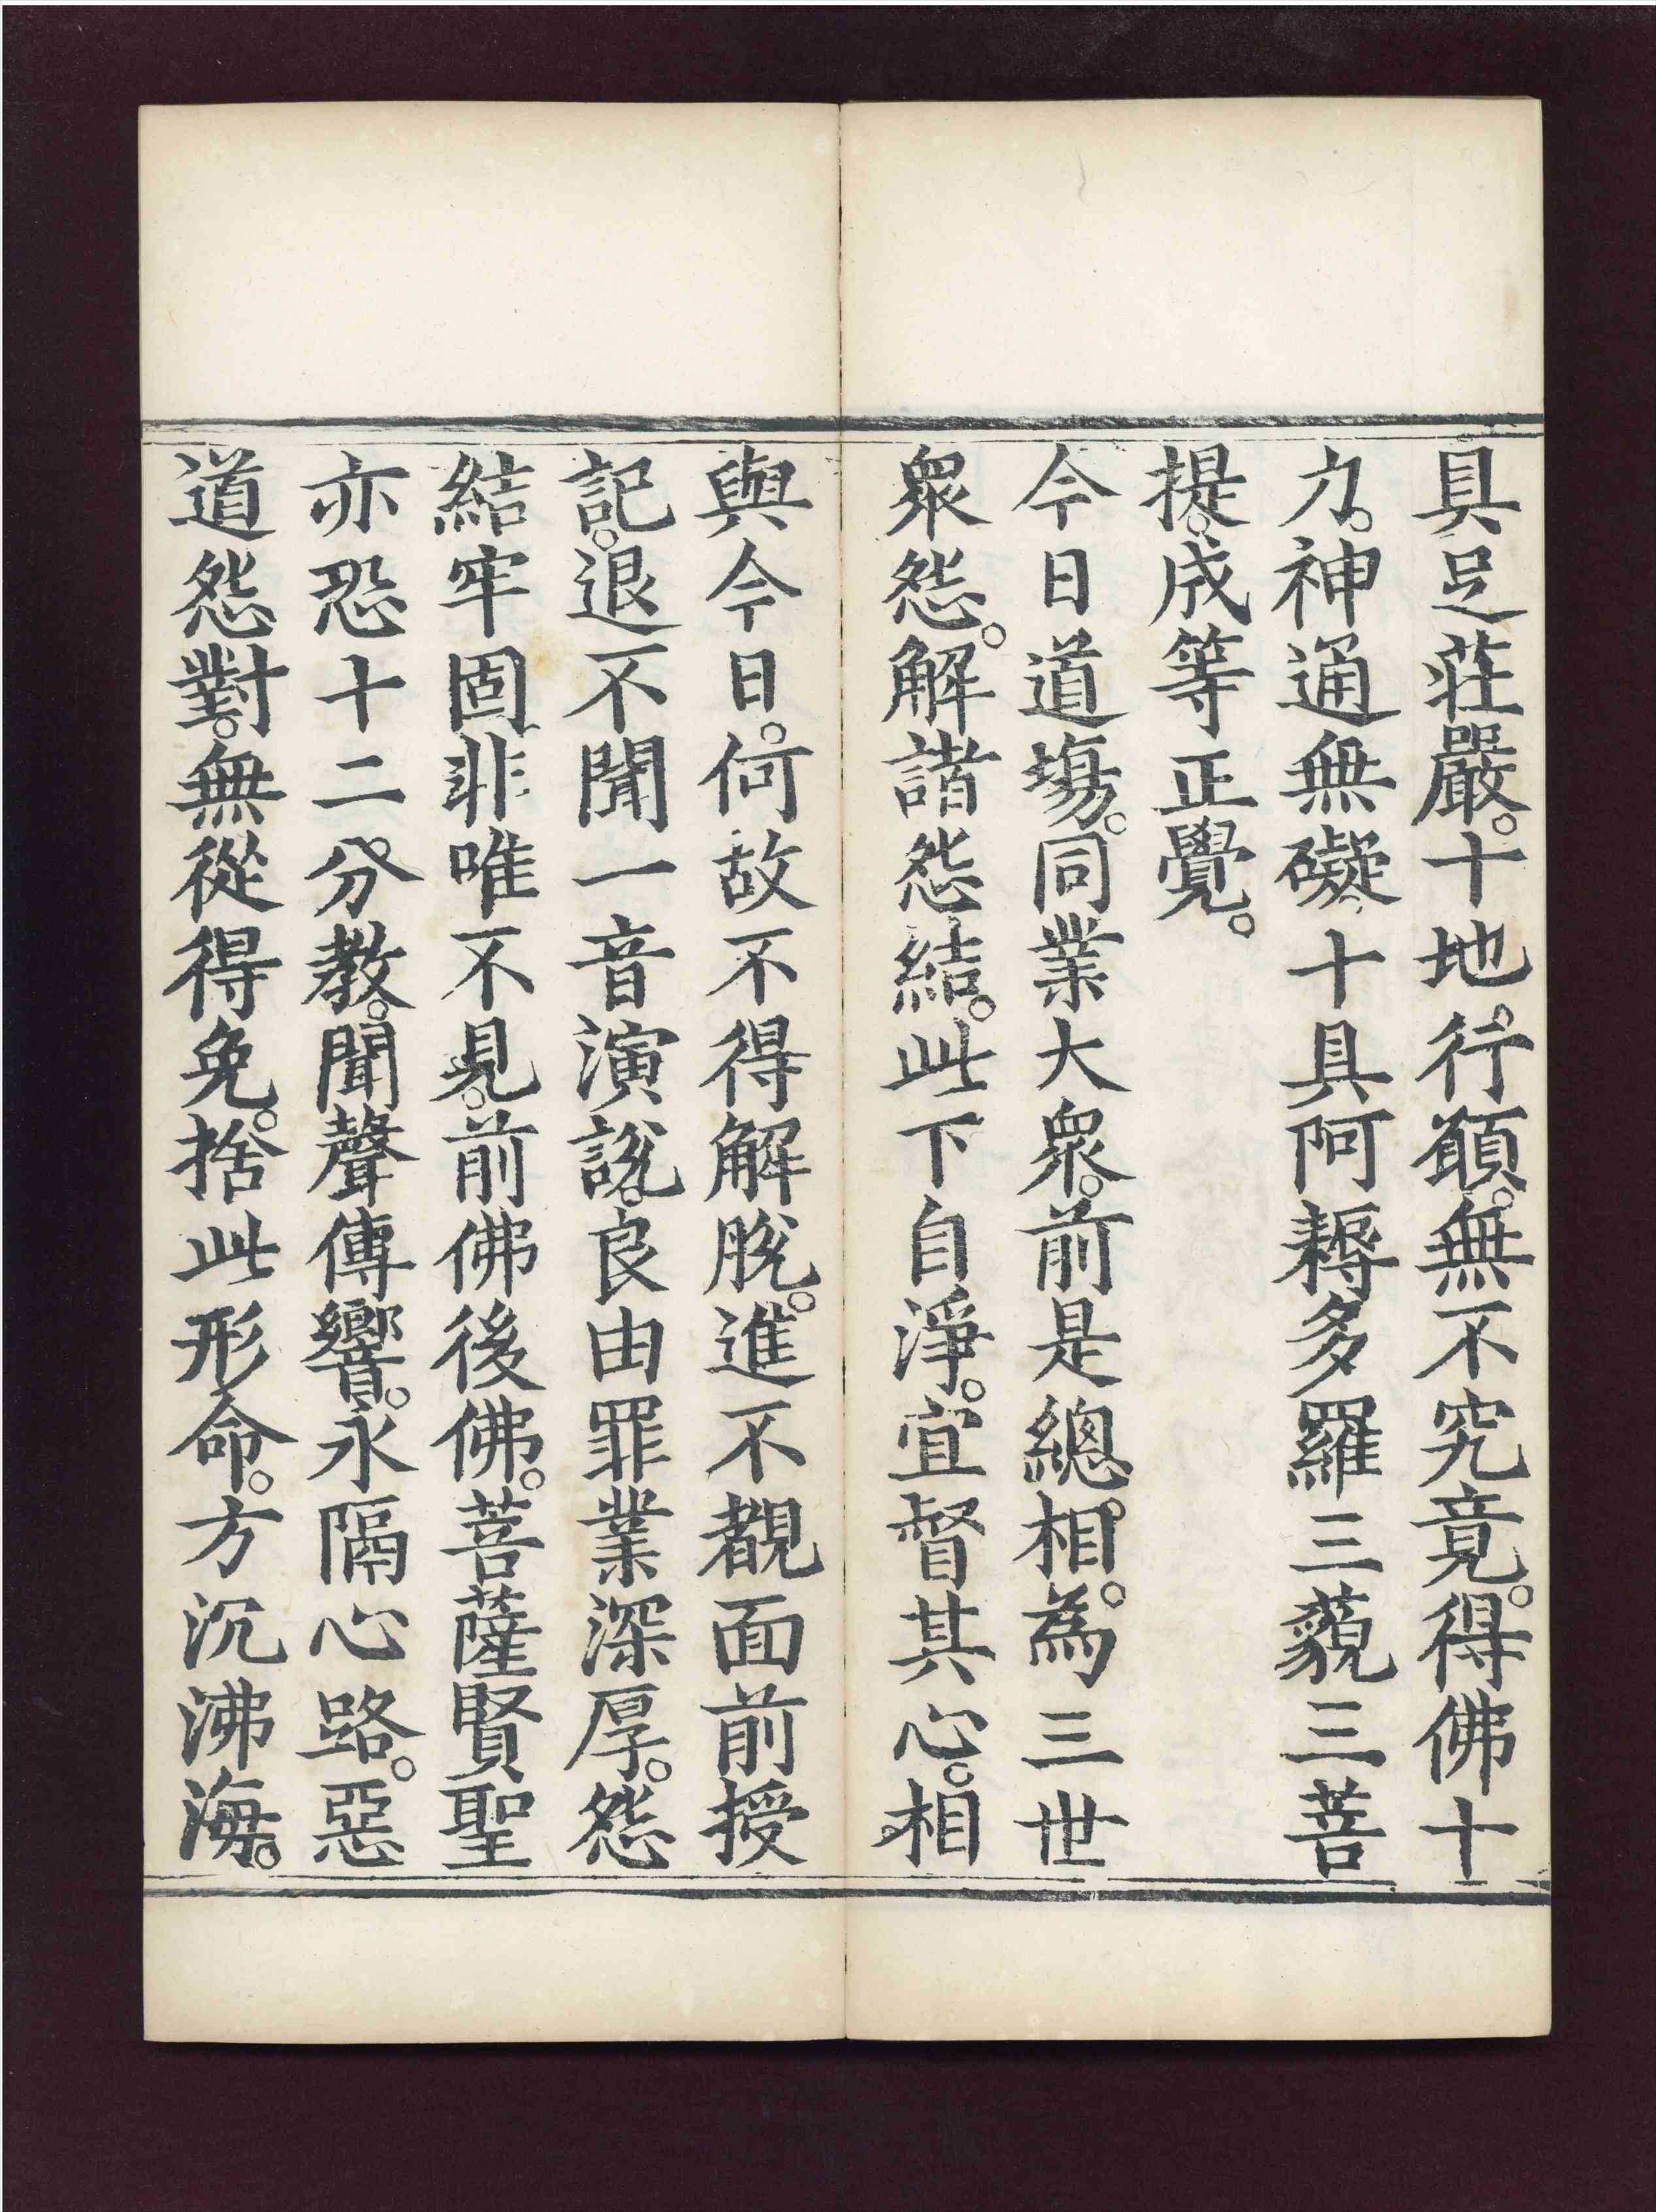 具足莊嚴。十地行願。無不究竟。得佛十
力。神通無礙十具阿耨多羅三藐三菩
提。成等正覺。
今日道場。同業大眾。前是總相。為三世
眾怨。解諸怨結。此下自淨。宜督其心。相
與今日。何故不得解脫。進不覩面前授
記。退不聞一音演說。良由罪業深厚。怨
結牢固非唯不見。前佛後佛。菩薩賢聖
亦恐十二。分教。聞聲傳響。永隔心路。惡
道怨對。無從得免。捨此形命。方沉沸海。